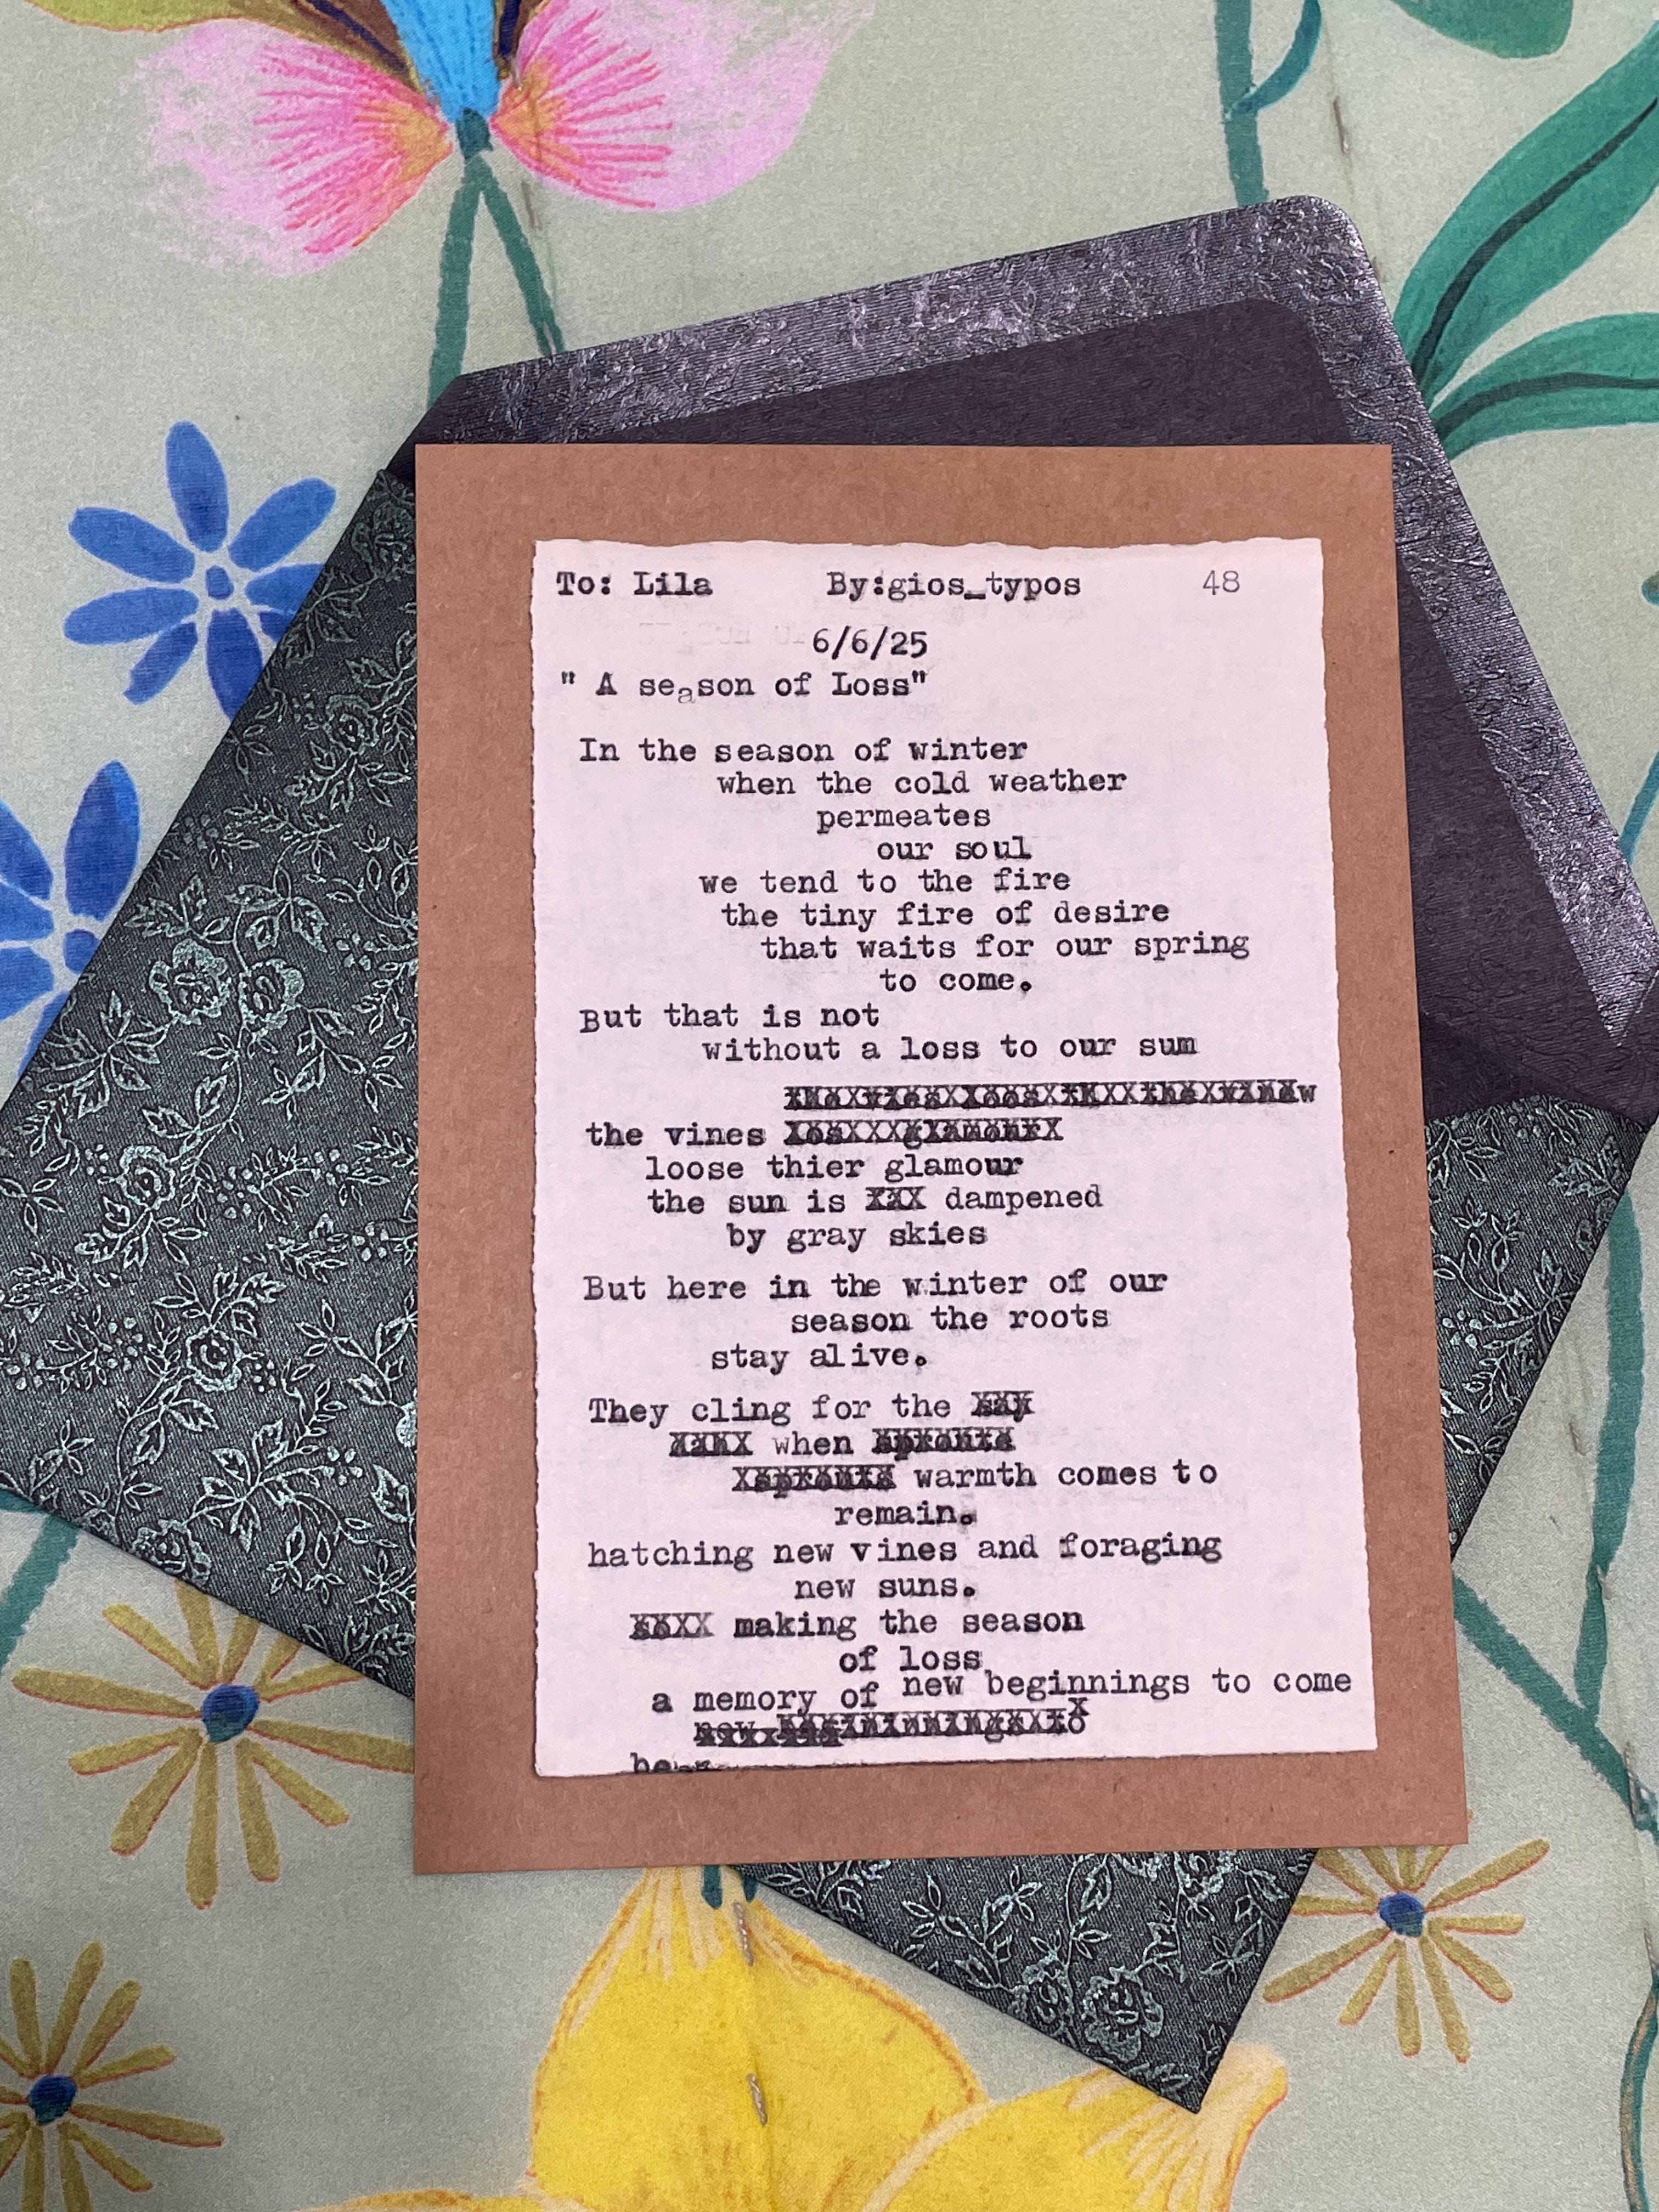 To: Lila By:gios_typos 48
6/6/25
" A season of Loss"
In the season of winter
when the cold weather
permeates
our soul
we tend to the fire
the tiny fire of desire
that waits for our spring
to come.
But that is not
without a loss to our sum
the vines
loose thier glamour
the sun is dampened
by gray skies
But here in the winter of our
season the roots
stay alive.
They cling for the
when
warmth comes to
remain.
hatching new vines and foraging
new suns.
making the season
of loss
a memory of new beginnings to come